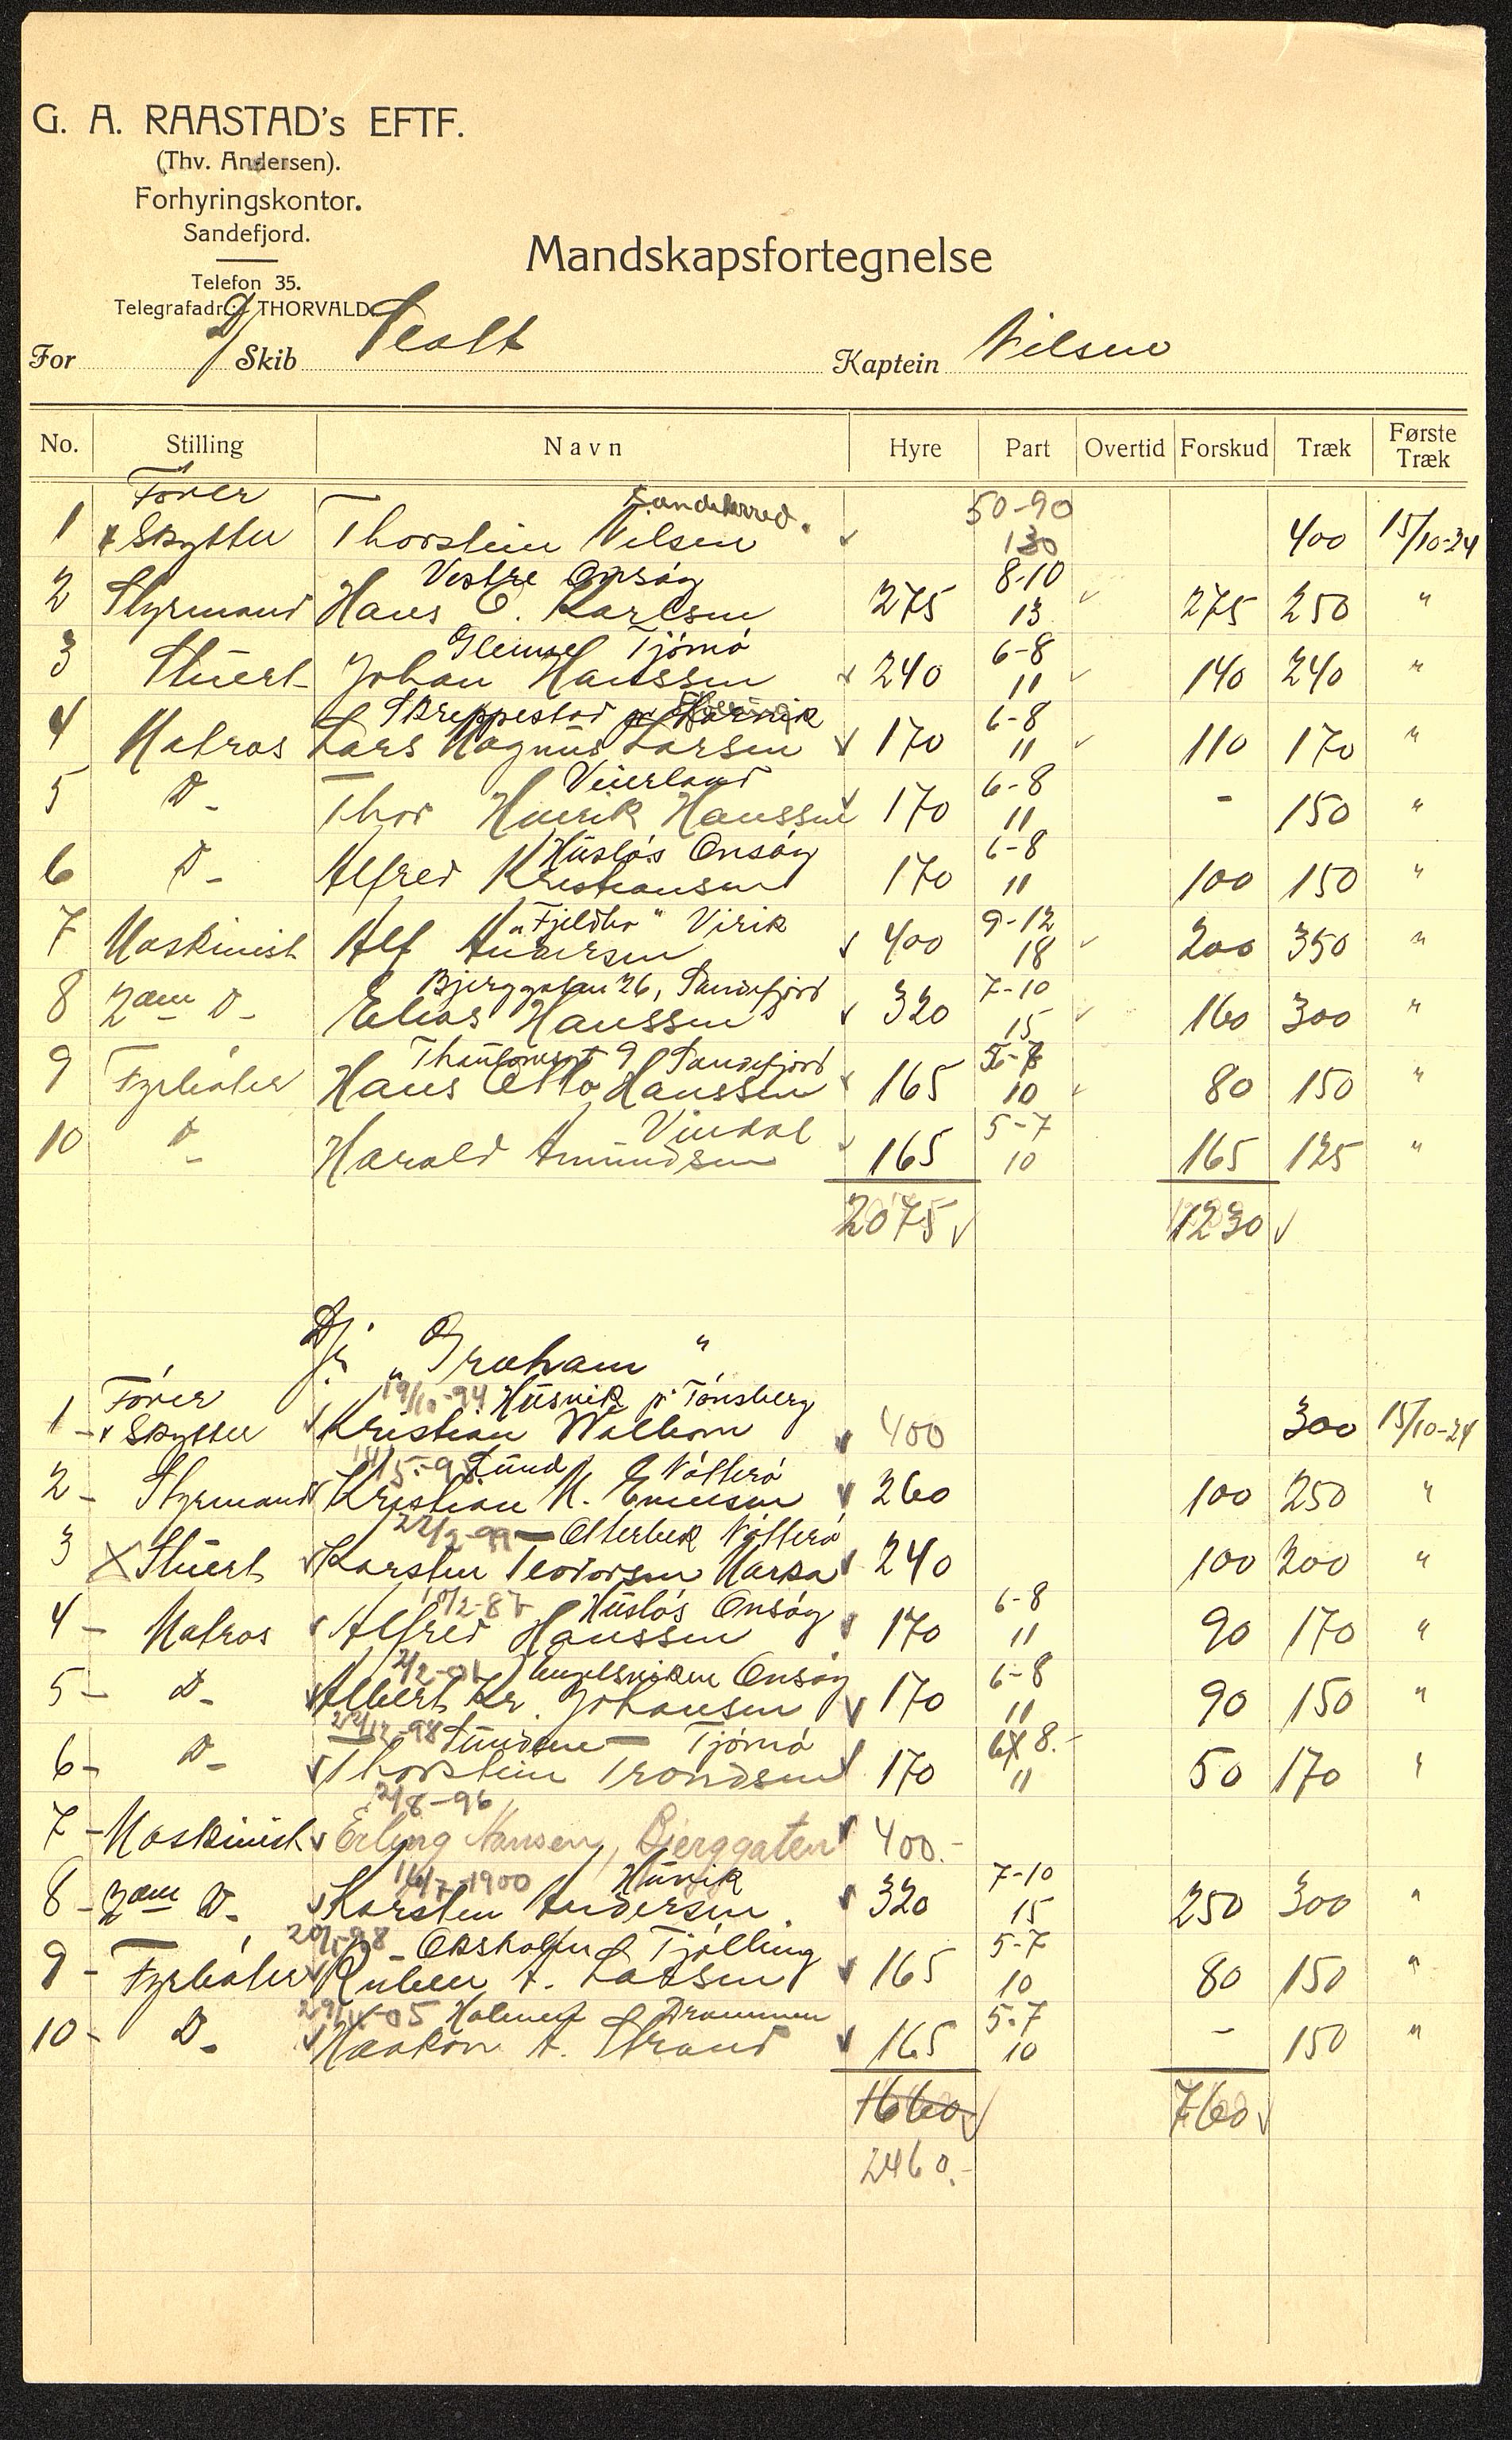 G. A. RAASTAD's EFTF.
(Thv. Andersen).
Forhyringskontor.
Sandefjord.
Telefon 35.
Telegrafadr.: THORVALD.
Mandskapsfortegnelse
For D/ Skib Scott Kaptein Nilsen
No. Stilling Navn Hyre Part Overtid Forskud Træk Første Træk
Fører Sandeherred. 50-90
1 & Skytter Thorstein Nilsen 130 400 15/10-24
Vestre Onsøy 8-10
2 Styrmand Hans E. Karlsen 275 13 275 250 "
Tjømø 6-8
3 Stuert Johan Hanssen 240 11 140 240 "
Skreppestad pr 6-8
4 Matros Lars Magnus Larsen 170 11 110 170 "
Veierland 6-8
5 Do Thor Henrik Hanssen 170 11 - 150 "
Husløs Onsøy 6-8
6 Do Alfred Kristiansen 170 11 100 150 "
"Fjeldbo" Virik 9-12
7 Maskinist Alf Andersen 400 18 200 350 "
Bjerggaten 26, Sandefjord 7-10
8 2den Do Elias Hanssen 320 15 160 300 "
9 Sandefjord 5-7
9 Fyrbøter Hans Otto Hanssen 165 10 80 150 "
Vindal 5-7
10 Do Harald Amundsen 165 10 165 125 "
2075 1230
D/S "Graham"
Fører 19/10-94 Husvik p. Tønsberg
1 - & Skytter Kristian Wølbom 400 300 15/10-24
Lund Nøtterø
2 - Styrmand Kristian M. Evensen 260 100 250 "
22/2-99 - Oterbek Nøtterø
3 X Stuert Karsten Teodorsen Marka 240 100 200 "
Husløs Onsøy 6-8
4 - Matros Alfred Hanssen 170 11 90 170 "
2/2-01 Engelsviken Onsøy 6-8
5 - Do Albert Kr. Johansen 170 11 90 150 "
22/12-98 Sundene - Tjømø 6-8.-
6 - Do Thorstein Trondsen 170 11 50 170 "
2/8-96
7 - Maskinist Erling Hansen, Bjerggaten 400.-
16/7-1900 Hunvik 7-10
8 - 2den Do Karsten Andersen. 320 15 250 300 "
Oksholm Tjølling 5-7
9 - Fyrbøter Ruben A. Larsen 165 10 80 150 "
Drammen 5-7
10 - Do Haakon A. Strand 165 10 - 150 "
1660 760
2460.-